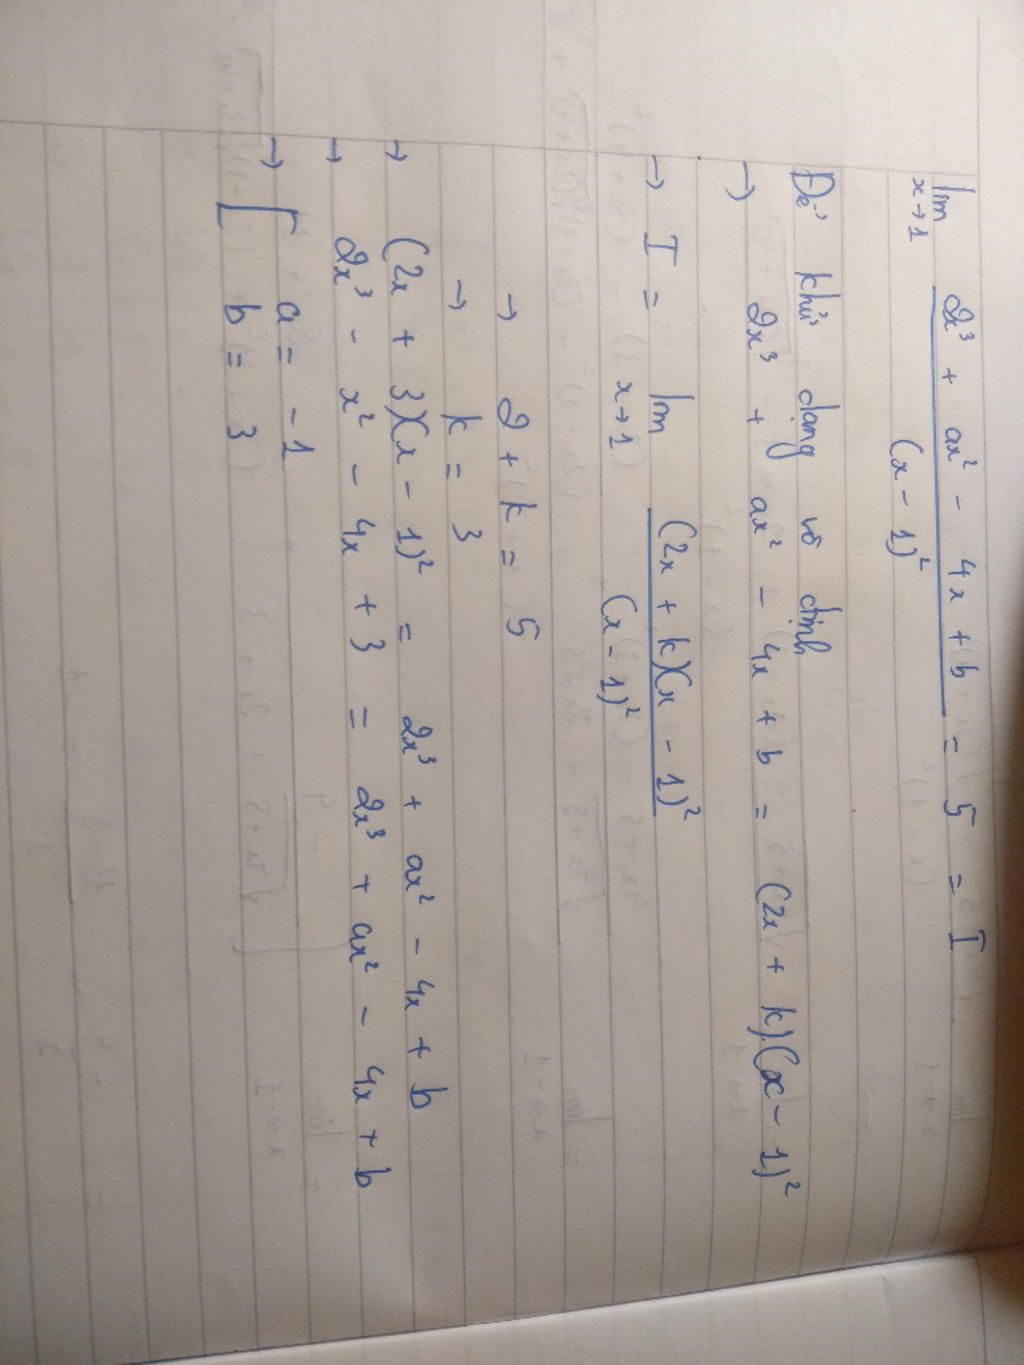 lim x→1 (2x³ + ax² - 4x + b) / (x - 1)² = 5 = I
Để khử dạng vô định
→ 2x³ + ax² - 4x + b = (2x + k).(x - 1)²
→ I = lim x→1 (2x + k)(x - 1)² / (x - 1)²
→ 2 + k = 5
→ k = 3
→ (2x + 3)(x - 1)² = 2x³ + ax² - 4x + b
→ 2x³ - x² - 4x + 3 = 2x³ + ax² - 4x + b
→ [ a = -1
b = 3